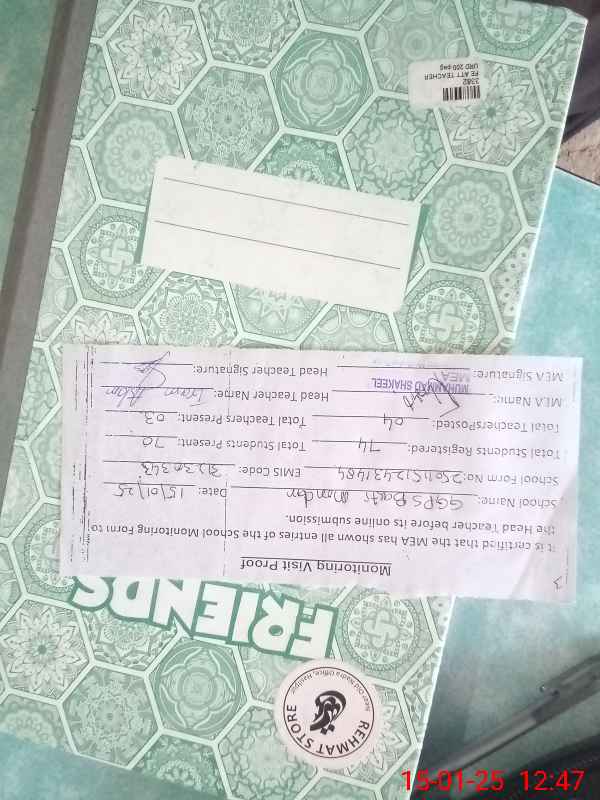 3
Monitoring Visit Proof
It is certified that the MEA has shown all entries of the School Monitoring Form to
the Head Teacher before its online submission.
School Name: GGPS Basti Date: 15/01/25
School Form No: 25011512431484 EMIS Code: 31230343
Total Students Registered: 74 Total Students Present: 70
Total TeachersPosted: 04 Total Teachers Present: 03
MEA Name: MUHAMMAD SHAKEEL Head Teacher Name:
MEA
MEA Signature: Head Teacher Signature:
FRIENDS
REHMAT STORE
Near Old Nadra Office, Hasilpur
3382
FE ATT TEACHER
URD 200 pag
15-01-25 12:47